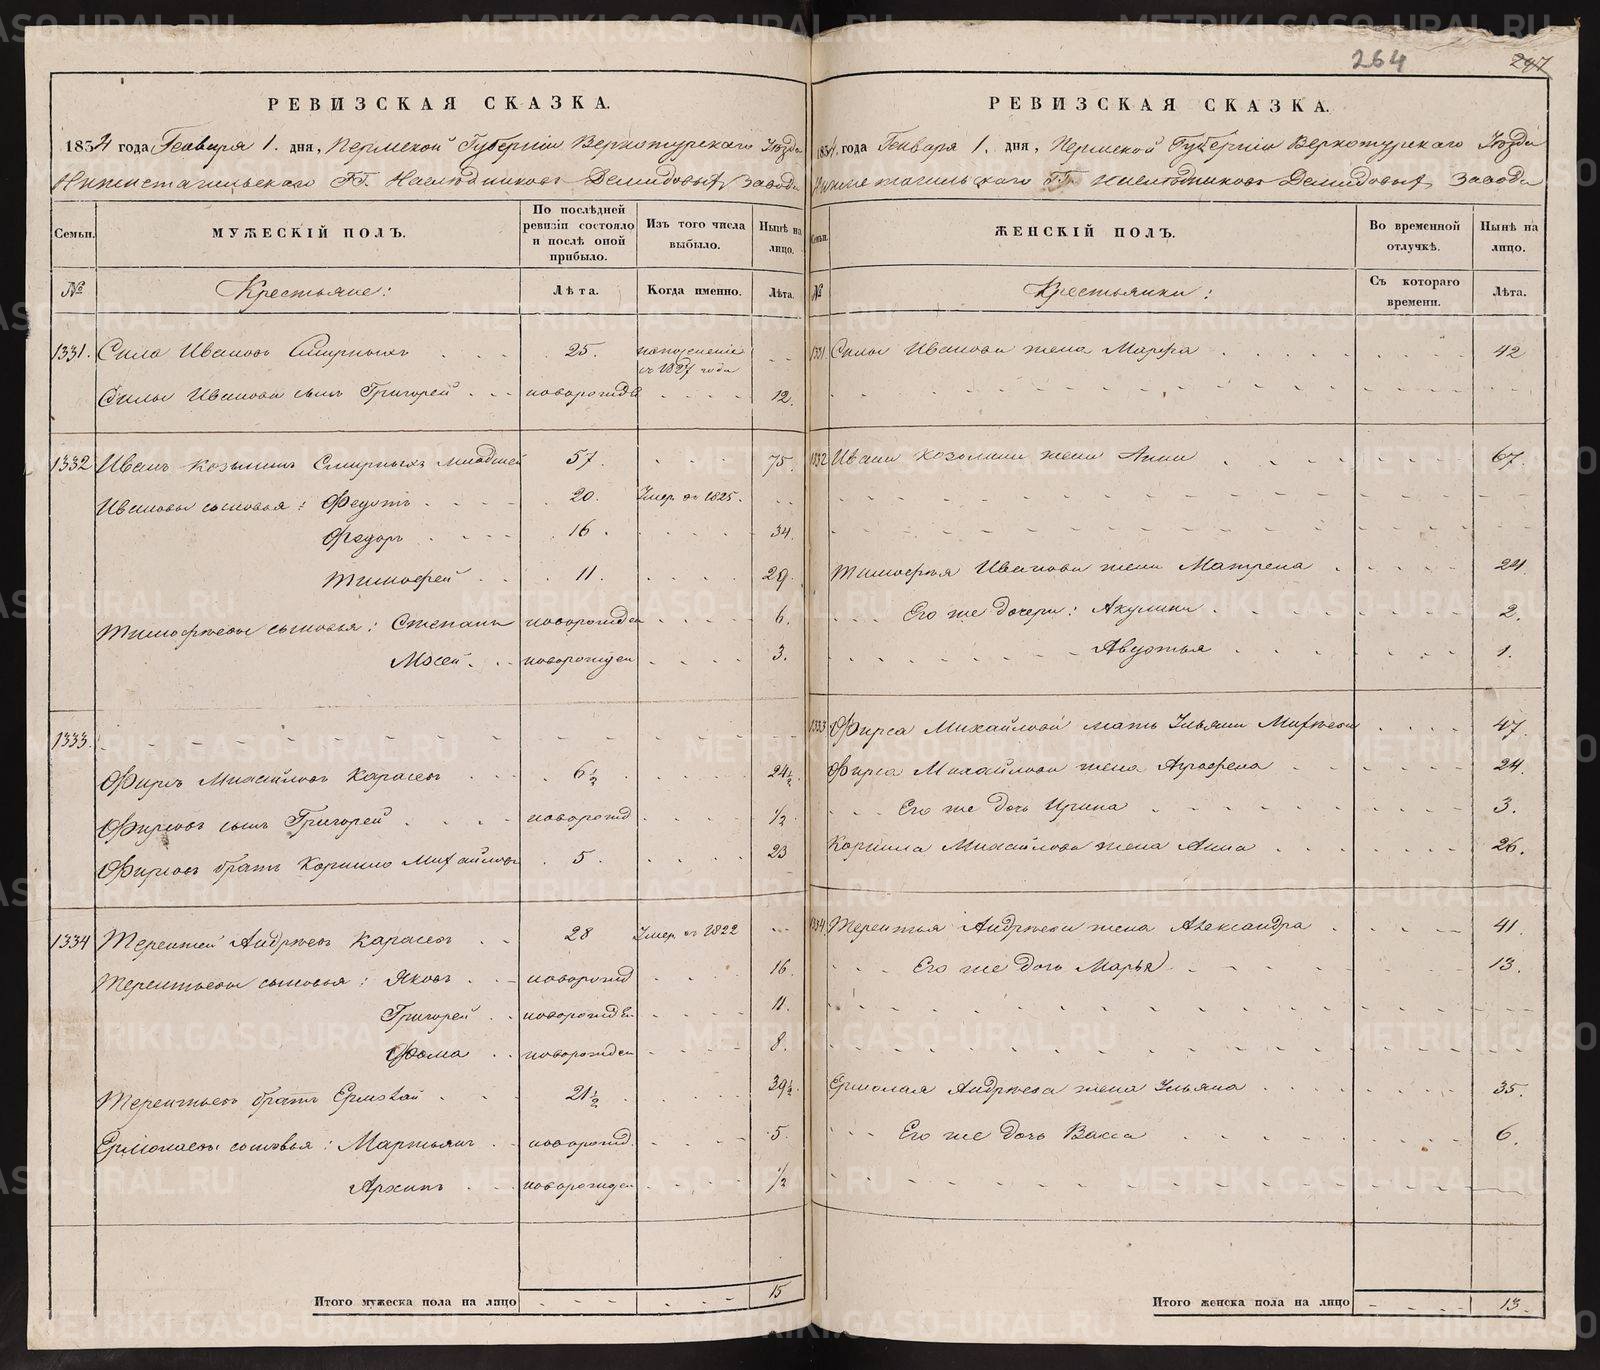 264
297
РЕВИЗСКАЯ СКАЗКА.
1834 года Генваря 1. дня, Пермской Губернiи Верхотурскаго Уѣзда
Нижнетагильскаго ГГ. Наслѣдниковъ Демидовыхъ завода
Семьи.
МУЖЕСКІЙ ПОЛЪ.
По послѣдней ревизіи состояло и послѣ оной прибыло.
Изъ того числа выбыло.
Нынѣ на лицо.
№
Крестьяне:
Лѣта.
Когда именно.
Лѣта.
1331. Сила Ивановъ Смирныхъ 25. въ 1827 года
Силы Иванова сынъ Григорей новорожде 12.
1332 Иванъ Козьминъ Смирныхъ младшей 57. 75.
Ивановы сыновья: Федотъ 20. Умер. въ 1825.
Федоръ 16. 34.
Тимофей 11. 29.
Тимофѣевы сыновья: Степанъ новорожден 6.
Мосей новорожден 3.
1333.
Фирсъ Михайловъ Карасевъ 6½ 24½
Фирсовъ сынъ Григорей новорожд ½
Фирсовъ братъ Корнило Михайловъ 5. 23
1334 Терентей Андрѣевъ Карасевъ 28 Умер. въ 1822
Терентьевы сыновья: Яковъ новорожд 16.
Григорей новорожден 11.
Фома новорожден 8.
Терентьевъ братъ Ермолай 21½ 39½
Ермолаевы сыновья: Мартьянъ новорожд. 5.
Архипъ новорожден ½
Итого мужеска пола на лицо 15
РЕВИЗСКАЯ СКАЗКА.
1834. года Генваря 1. дня, Пермской Губернiи Верхотурскаго Уѣзда
Нижнетагильскаго ГГ. Наслѣдниковъ Демидовыхъ завода
Семьи.
ЖЕНСКІЙ ПОЛЪ.
Во временной отлучкѣ.
Нынѣ на лицо.
№
Крестьянки:
Съ котораго времени.
Лѣта.
1331 Силы Иванова жена Марфа 42
1332 Ивана Козьмина жена Анна 67.
Тимофѣя Иванова жена Матрена 24
Его же дочери: Акулина 2.
Авдотья 1.
1333 Фирса Михайлова мать Ульяна 47.
Фирса Михайлова жена Агрофена 24.
Его же дочь Ирина 3.
Корнила Михайлова жена Анна 26.
1334. Терентья Андрѣева жена Александра 41.
Его же дочь Марья 13.
Ермолая Андрѣева жена Ульяна 35.
Его же дочь Васса 6.
Итого женска пола на лицо 13.
METRIKI.GASO-URAL.RU